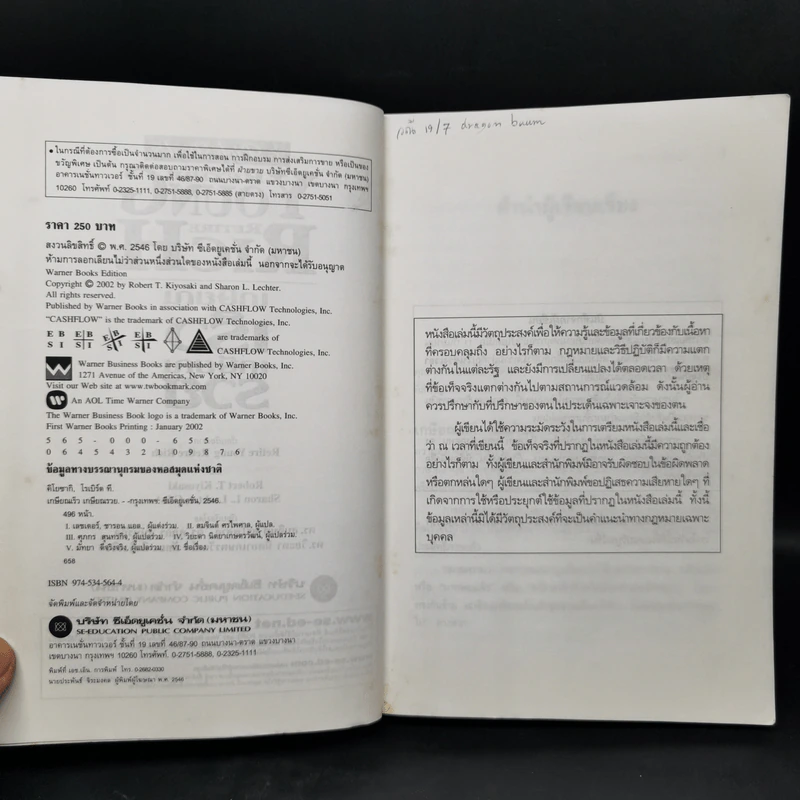 • ในกรณีที่ต้องการซื้อเป็นจำนวนมาก เพื่อใช้ในการสอน การฝึกอบรม การส่งเสริมการขาย หรือเป็นของ
ขวัญพิเศษ เป็นต้น กรุณาติดต่อสอบถามราคาพิเศษได้ที่ ฝ่ายขาย บริษัทซีเอ็ดยูเคชั่น จำกัด (มหาชน)
อาคารเนชั่นทาวเวอร์ ชั้นที่ 19 เลขที่ 46/87-90 ถนนบางนา-ตราด แขวงบางนา เขตบางนา กรุงเทพฯ
10260 โทรศัพท์ 0-2325-1111, 0-2751-5888, 0-2751-5885 (สายตรง) โทรสาร 0-2751-5051
ราคา 250 บาท
สงวนลิขสิทธิ์ © พ.ศ. 2546 โดย บริษัท ซีเอ็ดยูเคชั่น จำกัด (มหาชน)
ห้ามการลอกเลียนไม่ว่าส่วนหนึ่งส่วนใดของหนังสือเล่มนี้ นอกจากจะได้รับอนุญาต
Warner Books Edition
Copyright © 2002 by Robert T. Kiyosaki and Sharon L. Lechter.
All rights reserved.
Published by Warner Books in association with CASHFLOW Technologies, Inc.
"CASHFLOW" is the trademark of CASHFLOW Technologies, Inc.
E B S I E B S I E B S I E B S I are trademarks of
CASHFLOW Technologies, Inc.
Warner Business Books are published by Warner Books, Inc.
1271 Avenue of the Americas, New York, NY 10020
Visit our Web site at www.twbookmark.com
An AOL Time Warner Company
The Warner Business Book logo is a trademark of Warner Books, Inc.
First Warner Books Printing : January 2002
5 6 5 - 0 0 0 - 6 5 5
0 6 4 5 4 3 2 1 0 9 8 7 6
ข้อมูลทางบรรณานุกรมของหอสมุดแห่งชาติ
คิโยซากิ, โรเบิร์ต ที.
เกษียณเร็ว เกษียณรวย.--กรุงเทพฯ: ซีเอ็ดยูเคชั่น, 2546.
496 หน้า.
I. เลชเตอร์, ชารอน แอล., ผู้แต่งร่วม. II. สมจินต์ ศรไพศาล, ผู้แปล.
III. ศุภกร สุนทรกิจ, ผู้แปลร่วม. IV. วิยะดา นิตยาเกษตรวัฒน์, ผู้แปลร่วม.
V. มัทยา ดีจริงจริง, ผู้แปลร่วม. VI. ชื่อเรื่อง.
658
ISBN 974-534-564-4
จัดพิมพ์และจัดจำหน่ายโดย
บริษัท ซีเอ็ดยูเคชั่น จำกัด (มหาชน)
SE-EDUCATION PUBLIC COMPANY LIMITED
อาคารเนชั่นทาวเวอร์ ชั้นที่ 19 เลขที่ 46/87-90 ถนนบางนา-ตราด แขวงบางนา
เขตบางนา กรุงเทพฯ 10260 โทรศัพท์. 0-2751-5888, 0-2325-1111
พิมพ์ที่ เอช.เอ็น. การพิมพ์ โทร. 0-2682-0330
นายประพันธ์ จิระมงคล ผู้พิมพ์ผู้โฆษณา พ.ศ. 2546
19/7 dragon baum
หนังสือเล่มนี้มีวัตถุประสงค์เพื่อให้ความรู้และข้อมูลที่เกี่ยวข้องกับเนื้อหา
ที่ครอบคลุมถึง อย่างไรก็ตาม กฎหมายและวิธีปฏิบัติก็มีความแตก
ต่างกันในแต่ละรัฐ และยังมีการเปลี่ยนแปลงได้ตลอดเวลา ด้วยเหตุ
ที่ข้อเท็จจริงแตกต่างกันไปตามสถานการณ์แวดล้อม ดังนั้นผู้อ่าน
ควรปรึกษากับที่ปรึกษาของตนในประเด็นเฉพาะเจาะจงของตน
ผู้เขียนได้ใช้ความระมัดระวังในการเตรียมหนังสือเล่มนี้และเชื่อ
ว่า ณ เวลาที่เขียนนี้ ข้อเท็จจริงที่ปรากฏในหนังสือเล่มนี้มีความถูกต้อง
อย่างไรก็ตาม ทั้งผู้เขียนและสำนักพิมพ์มิอาจรับผิดชอบในข้อผิดพลาด
หรือตกหล่นใดๆ ผู้เขียนและสำนักพิมพ์ขอปฏิเสธความเสียหายใดๆ ที่
เกิดจากการใช้หรือประยุกต์ใช้ข้อมูลที่ปรากฏในหนังสือเล่มนี้ ทั้งนี้
ข้อมูลเหล่านี้มิได้มีวัตถุประสงค์ที่จะเป็นคำแนะนำทางกฎหมายเฉพาะ
บุคคล